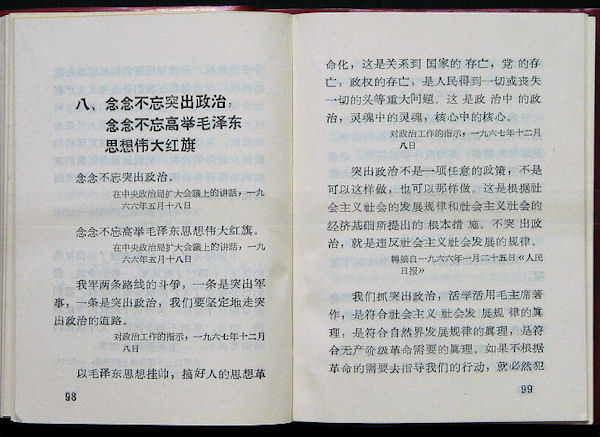 八、念念不忘突出政治，
念念不忘高举毛泽东
思想伟大红旗
念念不忘突出政治。
在中央政治局扩大会議上的讲話，一九
六六年五月十八日
念念不忘高举毛泽东思想伟大红旗。
在中央政治局扩大会議上的讲話，一九
六六年五月十八日
我军两条路线的斗爭，一条是突出军
事，一条是突出政治，我们要坚定地走突
出政治的道路。
对政治工作的指示，一九六七年十二月
八日
以毛泽东思想挂帅，搞好人的思想革
98
命化，这是关系到国家的存亡，党的存
亡，政权的存亡，是人民得到一切或丧失
一切的头等重大问题。这是政治中的政
治，灵魂中的灵魂，核心中的核心。
对政治工作的指示，一九六七年十二月
八日
突出政治不是一项任意的政策，不是
可以这样做，也可以那样做。这是根据社
会主义社会的发展规律和社会主义社会的
经济基础所提出的根本措施。不突出政
治，就是违反社会主义社会发展的规律。
轉摘自一九六六年一月二十五日《人民
日报》
我们抓突出政治，活学活用毛主席著
作，是符合社会主义社会发展规律的眞
理，是符合自然界发展规律的眞理，是符
合无产阶级革命需要的眞理。如果不根据
革命的需要去指导我们的行动，就必然犯
99